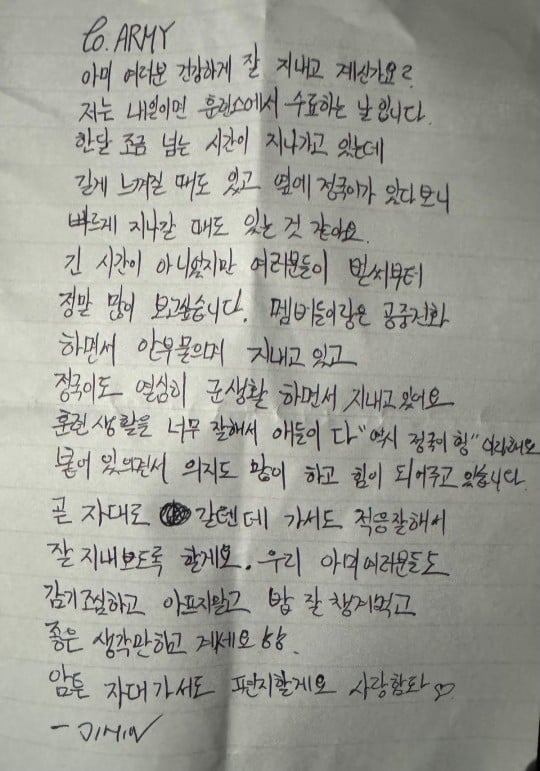 to. ARMY
아미 여러분 건강하게 잘 지내고 계신가요?
저는 내일이면 훈련소에서 수료하는 날 입니다.
한달 조금 넘는 시간이 지나가고 있는데
길게 느껴질 때도 있고 옆에 정국이가 있다보니
빠르게 지나갈 때도 있는 것 같아요.
긴 시간이 아니였지만 여러분들이 벌써부터
정말 많이 보고싶습니다. 멤버들이랑은 공중전화
하면서 안부물으며 지내고 있고
정국이도 열심히 군생활 하면서 지내고 있어요
훈련 생활을 너무 잘해서 애들이 다 "역시 정국이 형" 이래요
붙어 있으면서 의지도 많이 하고 힘이 되어주고 있습니다.
곧 자대로 갈텐데 가서도 적응잘해서
잘 지내보도록 할게요. 우리 아미여러분들도
감기조심하고 아프지말고 밥 잘 챙겨먹고
좋은 생각만하고 계세요 ㅎㅎ.
암튼 자대가서도 편지할게요 사랑함다 ♡
- JIMIN